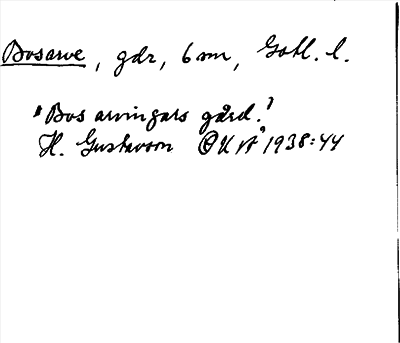 Bosarve, gdr, 6 sn, Gotl. l.
"Bos arvingars gård."
H. Gustavson 1938:44